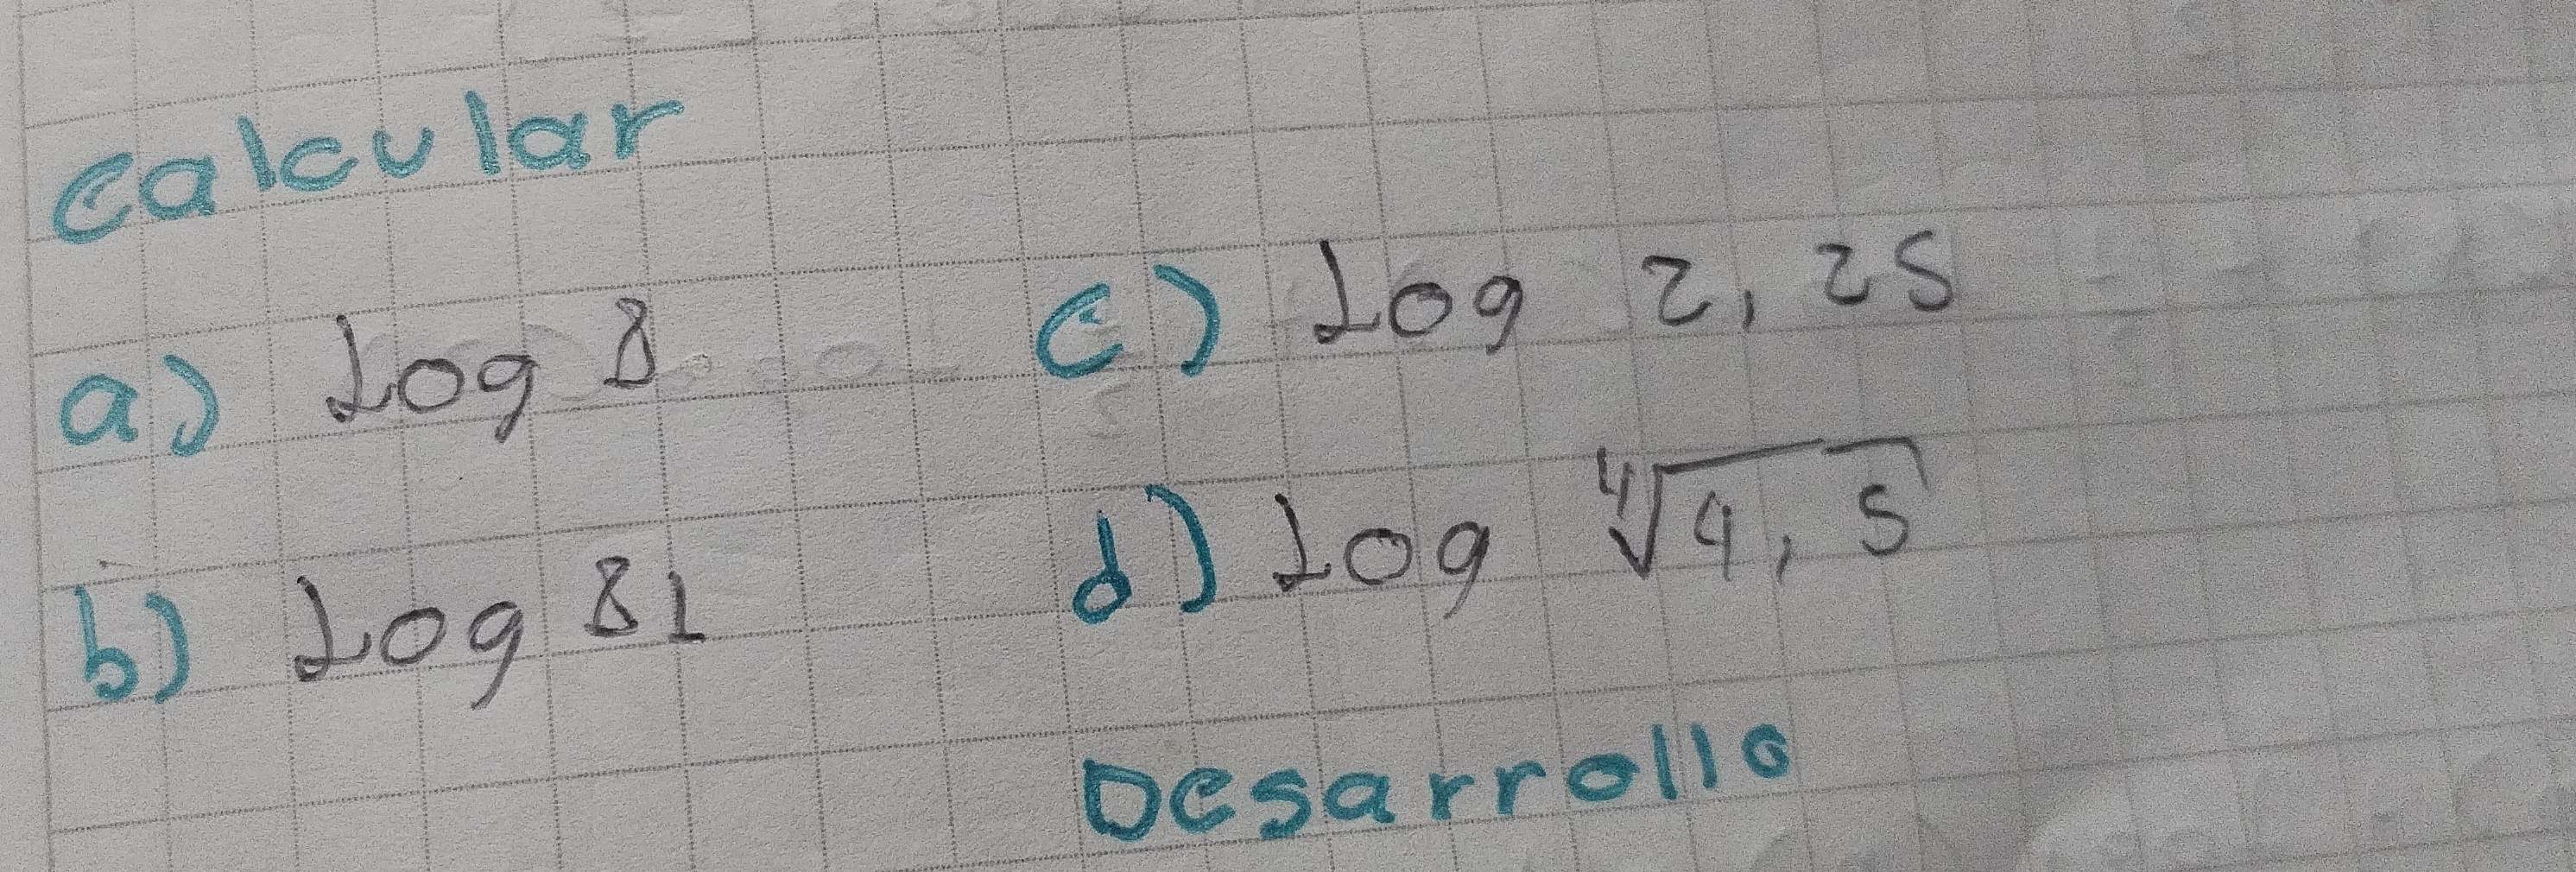 Calcular
a) Log 8
b) Log 81
c) Log 2,25
d) Log ∜4,5
Desarrollo